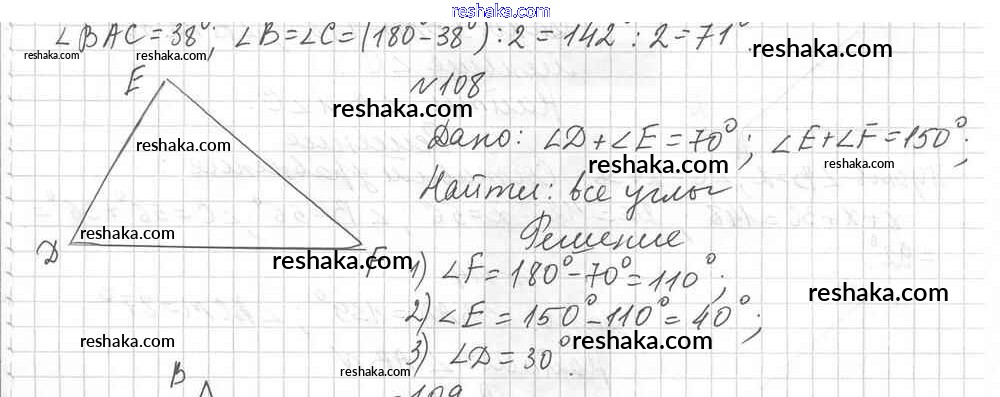 reshaka.com
∠BAC=38°; ∠B=∠C=(180°-38°):2=142°:2=71°.
reshaka.com reshaka.com reshaka.com
E
№108
reshaka.com reshaka.com
Дано: ∠D+∠E=70°; ∠E+∠F=150°;
reshaka.com reshaka.com reshaka.com
Найти: все углы
reshaka.com
Решение
D F
reshaka.com
1) ∠F=180°-70°=110°;
reshaka.com
2) ∠E=150°-110°=40°;
reshaka.com reshaka.com
3) ∠D=30°.
reshaka.com reshaka.com
B
109